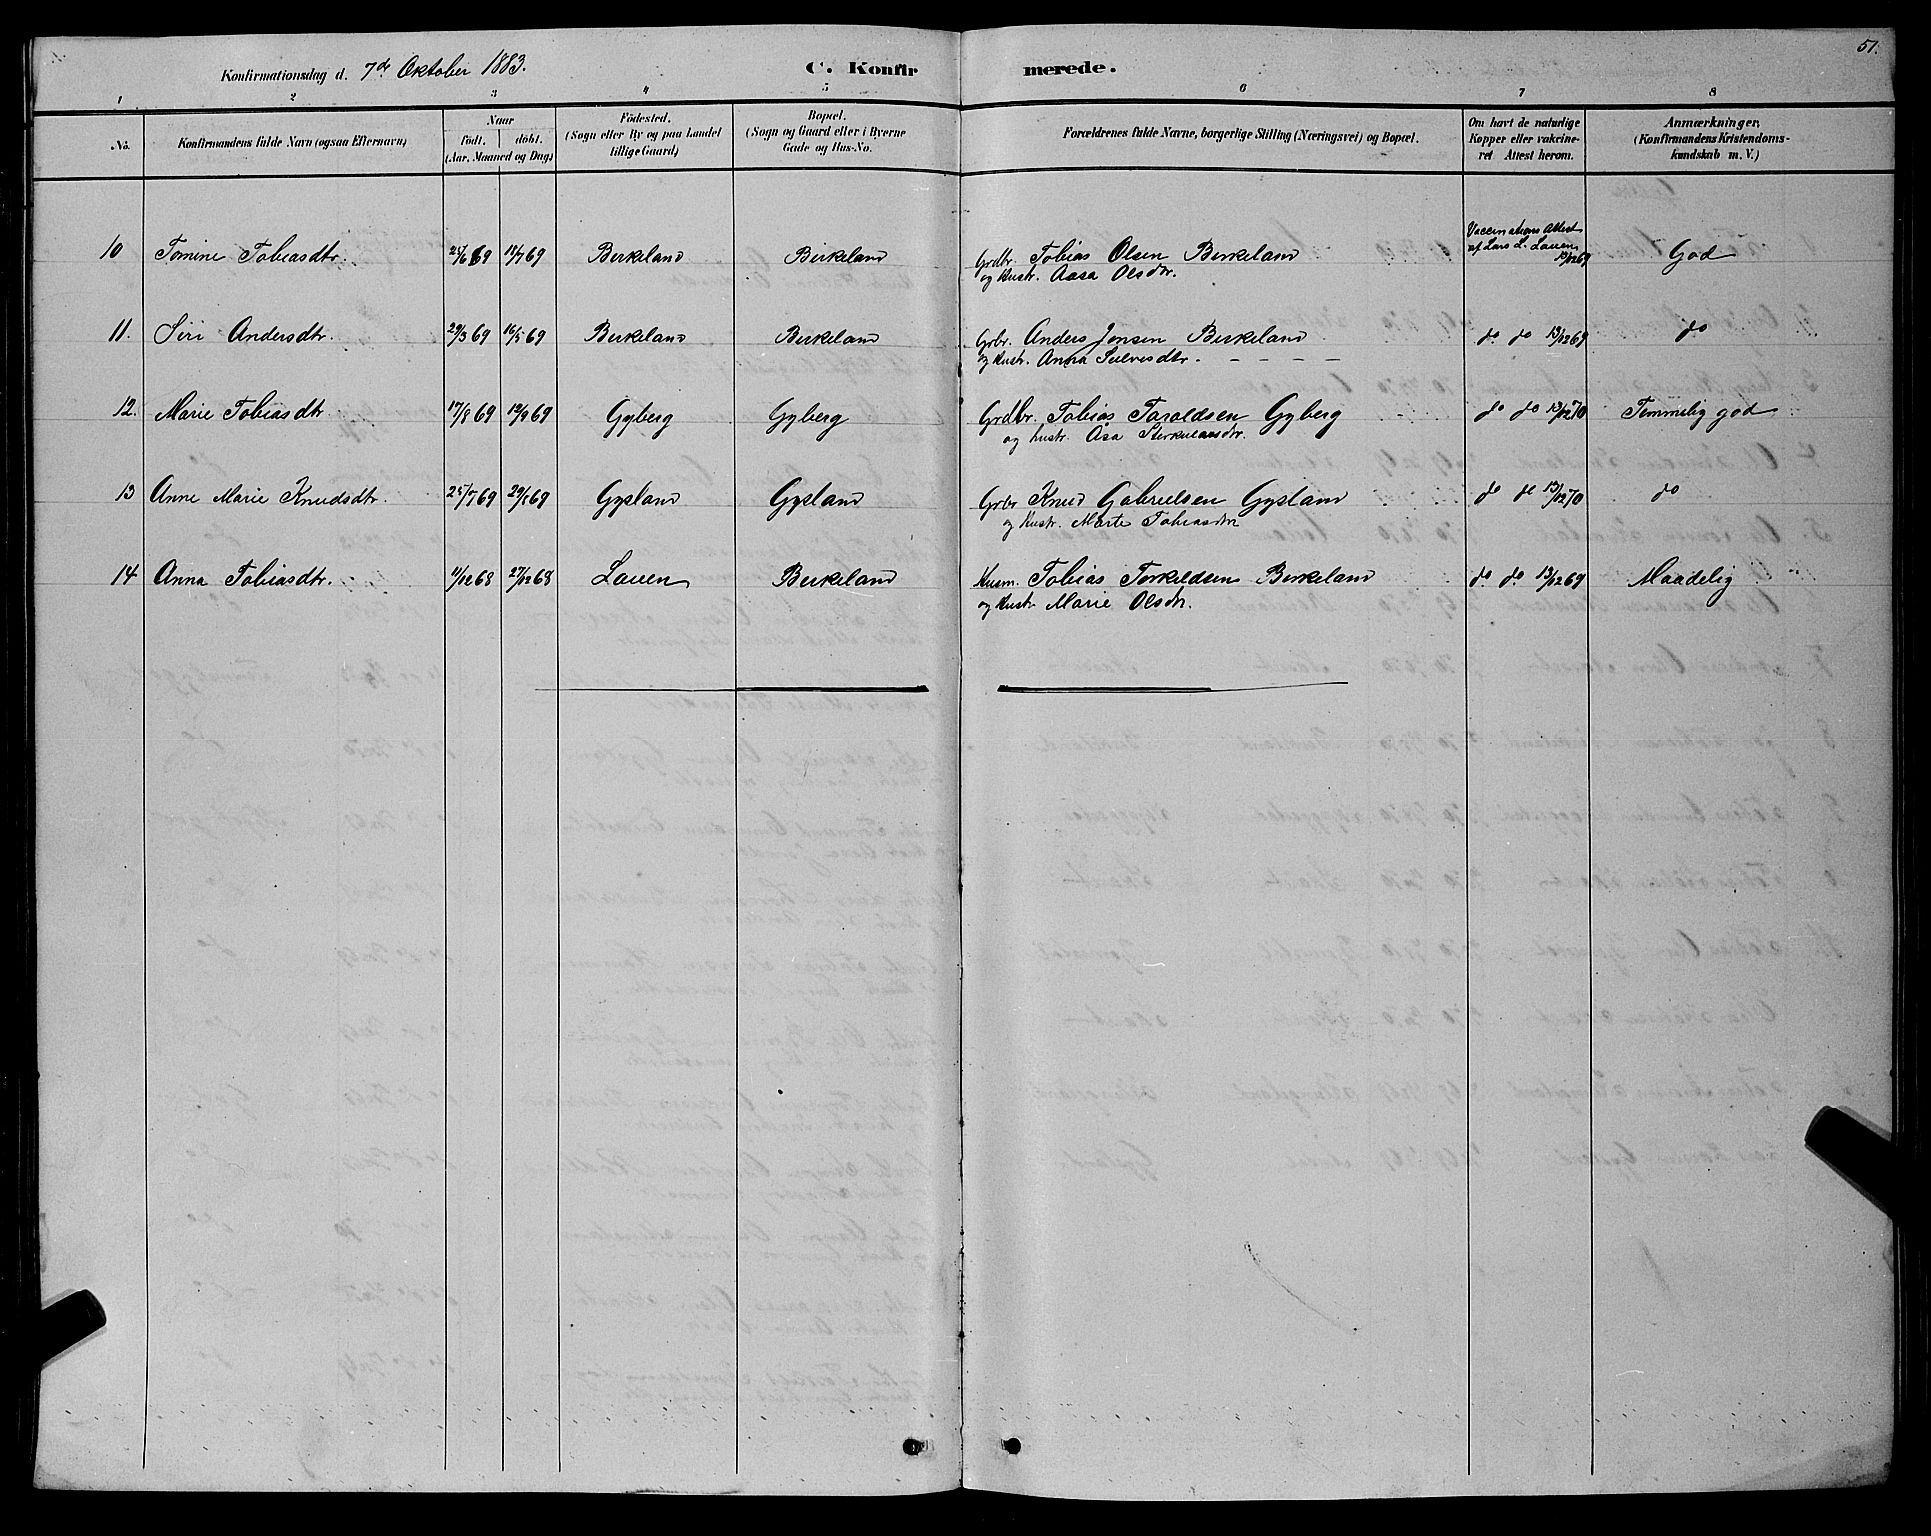 51.
Konfirmationsdag d. 7de Oktober 1883. C. Konfirmerede.
1 2 3 4 5 6 7 8
No. Konfirmandens fulde Navn (ogsaa Efternavn) Naar født. døbt. (Aar, Maaned og Dag) Fødested. (Sogn eller By og paa Landet tillige Gaard) Bopæl. (Sogn og Gaard eller i Byerne Gade og Hus-No. Forældrenes fulde Navne, borgerlige Stilling (Næringsvei) og Bopæl. Om havt de naturlige Kopper eller vakcineret Attest herom. Anmærkninger, (Konfirmandens Kristendomskundskab m. V.)
10 Tomine Tobiasdtr. 69 18/7 69 Birkeland Birkeland Grdbr. Tobias Olsen Birkeland Vaccinations Attest af Lars L. Lauen 13/12 69 God
og Hustr. Aasa Olsdtr.
11. Siri Andersdtr. 29/3 69 16/5 69 Birkeland Birkeland Grbr. Anders Jonsen Birkeland do do 13/12 69 do
og Hustr. Anna Sulvesdtr. - - - -
12. Marie Tobiasdtr. 17/8 69 12/9 69 Gyberg Gyberg Grdbr. Tobias Taraldsen Gyberg do do 13/12 70 Temmelig god
og hustr. Asa
13 Anne Marie Knudsdtr. 25/7 69 69 Gysland Gysland Grbr Knud Gabrielsen Gysland do do 13/12 70 do
og Hustr. Marte Tobiasdtr
14 Anna Tobiasdtr. 11/12 68 27/12 68 Lauen Birkeland Husm. Tobias Torkildsen Birkeland do do 13/12 69 Maadelig
og Hustr Marie Olsdtr.